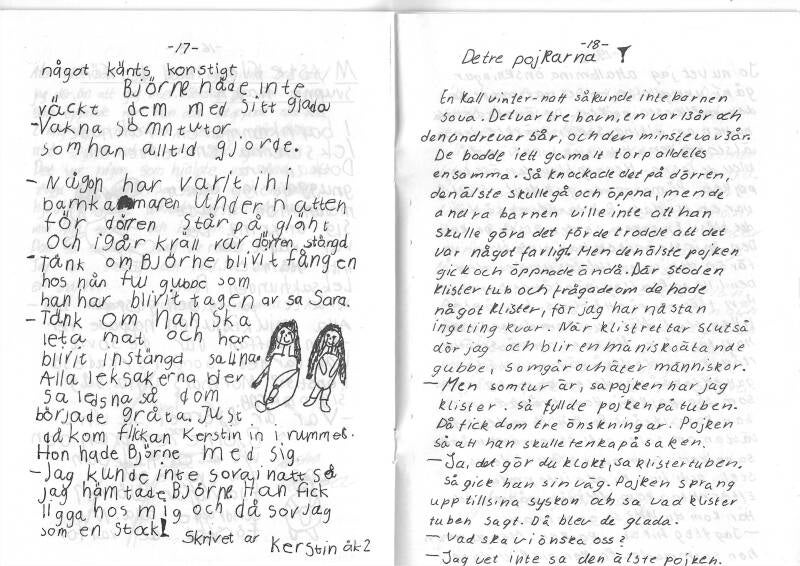 -17-
något känts konstigt
Björne hade inte
väckt dem med sitt glada
-Vakna sömntutor
som han alltid gjorde.
- Någon har varit ihi
barnkammaren under natten
för dörren står på glänt
och igår kväll var dörren stängd
- Tänk om Björne blivit fången
hos nån ful gubbe som
han har blivit tagen av sa Sara.
- Tänk om han ska
leta mat och har
blivit instängd sa Lina.
Alla leksakerna blev
så ledsna så dom
började gråta. Just
då kom flickan Kerstin in i rummet.
Hon hade Björne med sig.
- Jag kunde inte sova i natt så
jag hämtade Björne. Han fick
ligga hos mig och då sov jag
som en stock!
Skrivet av Kerstin åk 2
-18-
De tre pojkarna
En kall vinter-natt så kunde inte barnen
sova. Det var tre barn, en var 13år och
den andre var 5år, och den minste var 3år.
De bodde i ett gamalt torp alldeles
ensamma. Så knockade det på dörren,
den älste skulle gå och öppna, men de
andra barnen ville inte att han
skulle göra det för de trodde att det
var något farligt. Men den älste pojken
gick och öppnade ändå. Där stod en
klister tub och frågade om de hade
något klister, för jag har nästan
ingeting kvar. När klistret tar slut så
dör jag och blir en människoätande
gubbe, som går och äter människor.
- Men som tur är, sa pojken har jag
klister. Så fyllde pojken på tuben.
Då fick dom tre önskningar. Pojken
sa att han skulle tenka på saken.
- Ja, det gör du klokt, sa klistertuben.
Så gick han sin väg. Pojken sprang
upp till sina syskon och sa vad klister
tuben sagt. Då blev de glada.
- Vad ska vi önska oss?
- Jag vet inte sa den älste pojken.